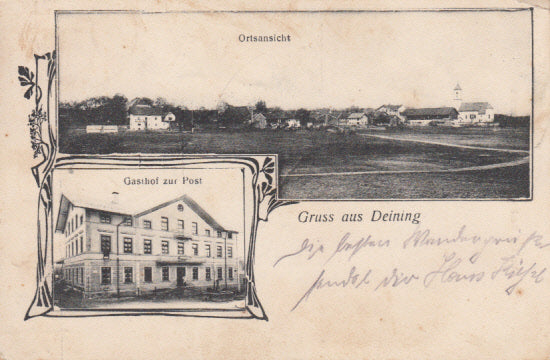 Ortsansicht
Gasthof zur Post
Gruss aus Deining
Die besten Wandergrüße
sendet Dir